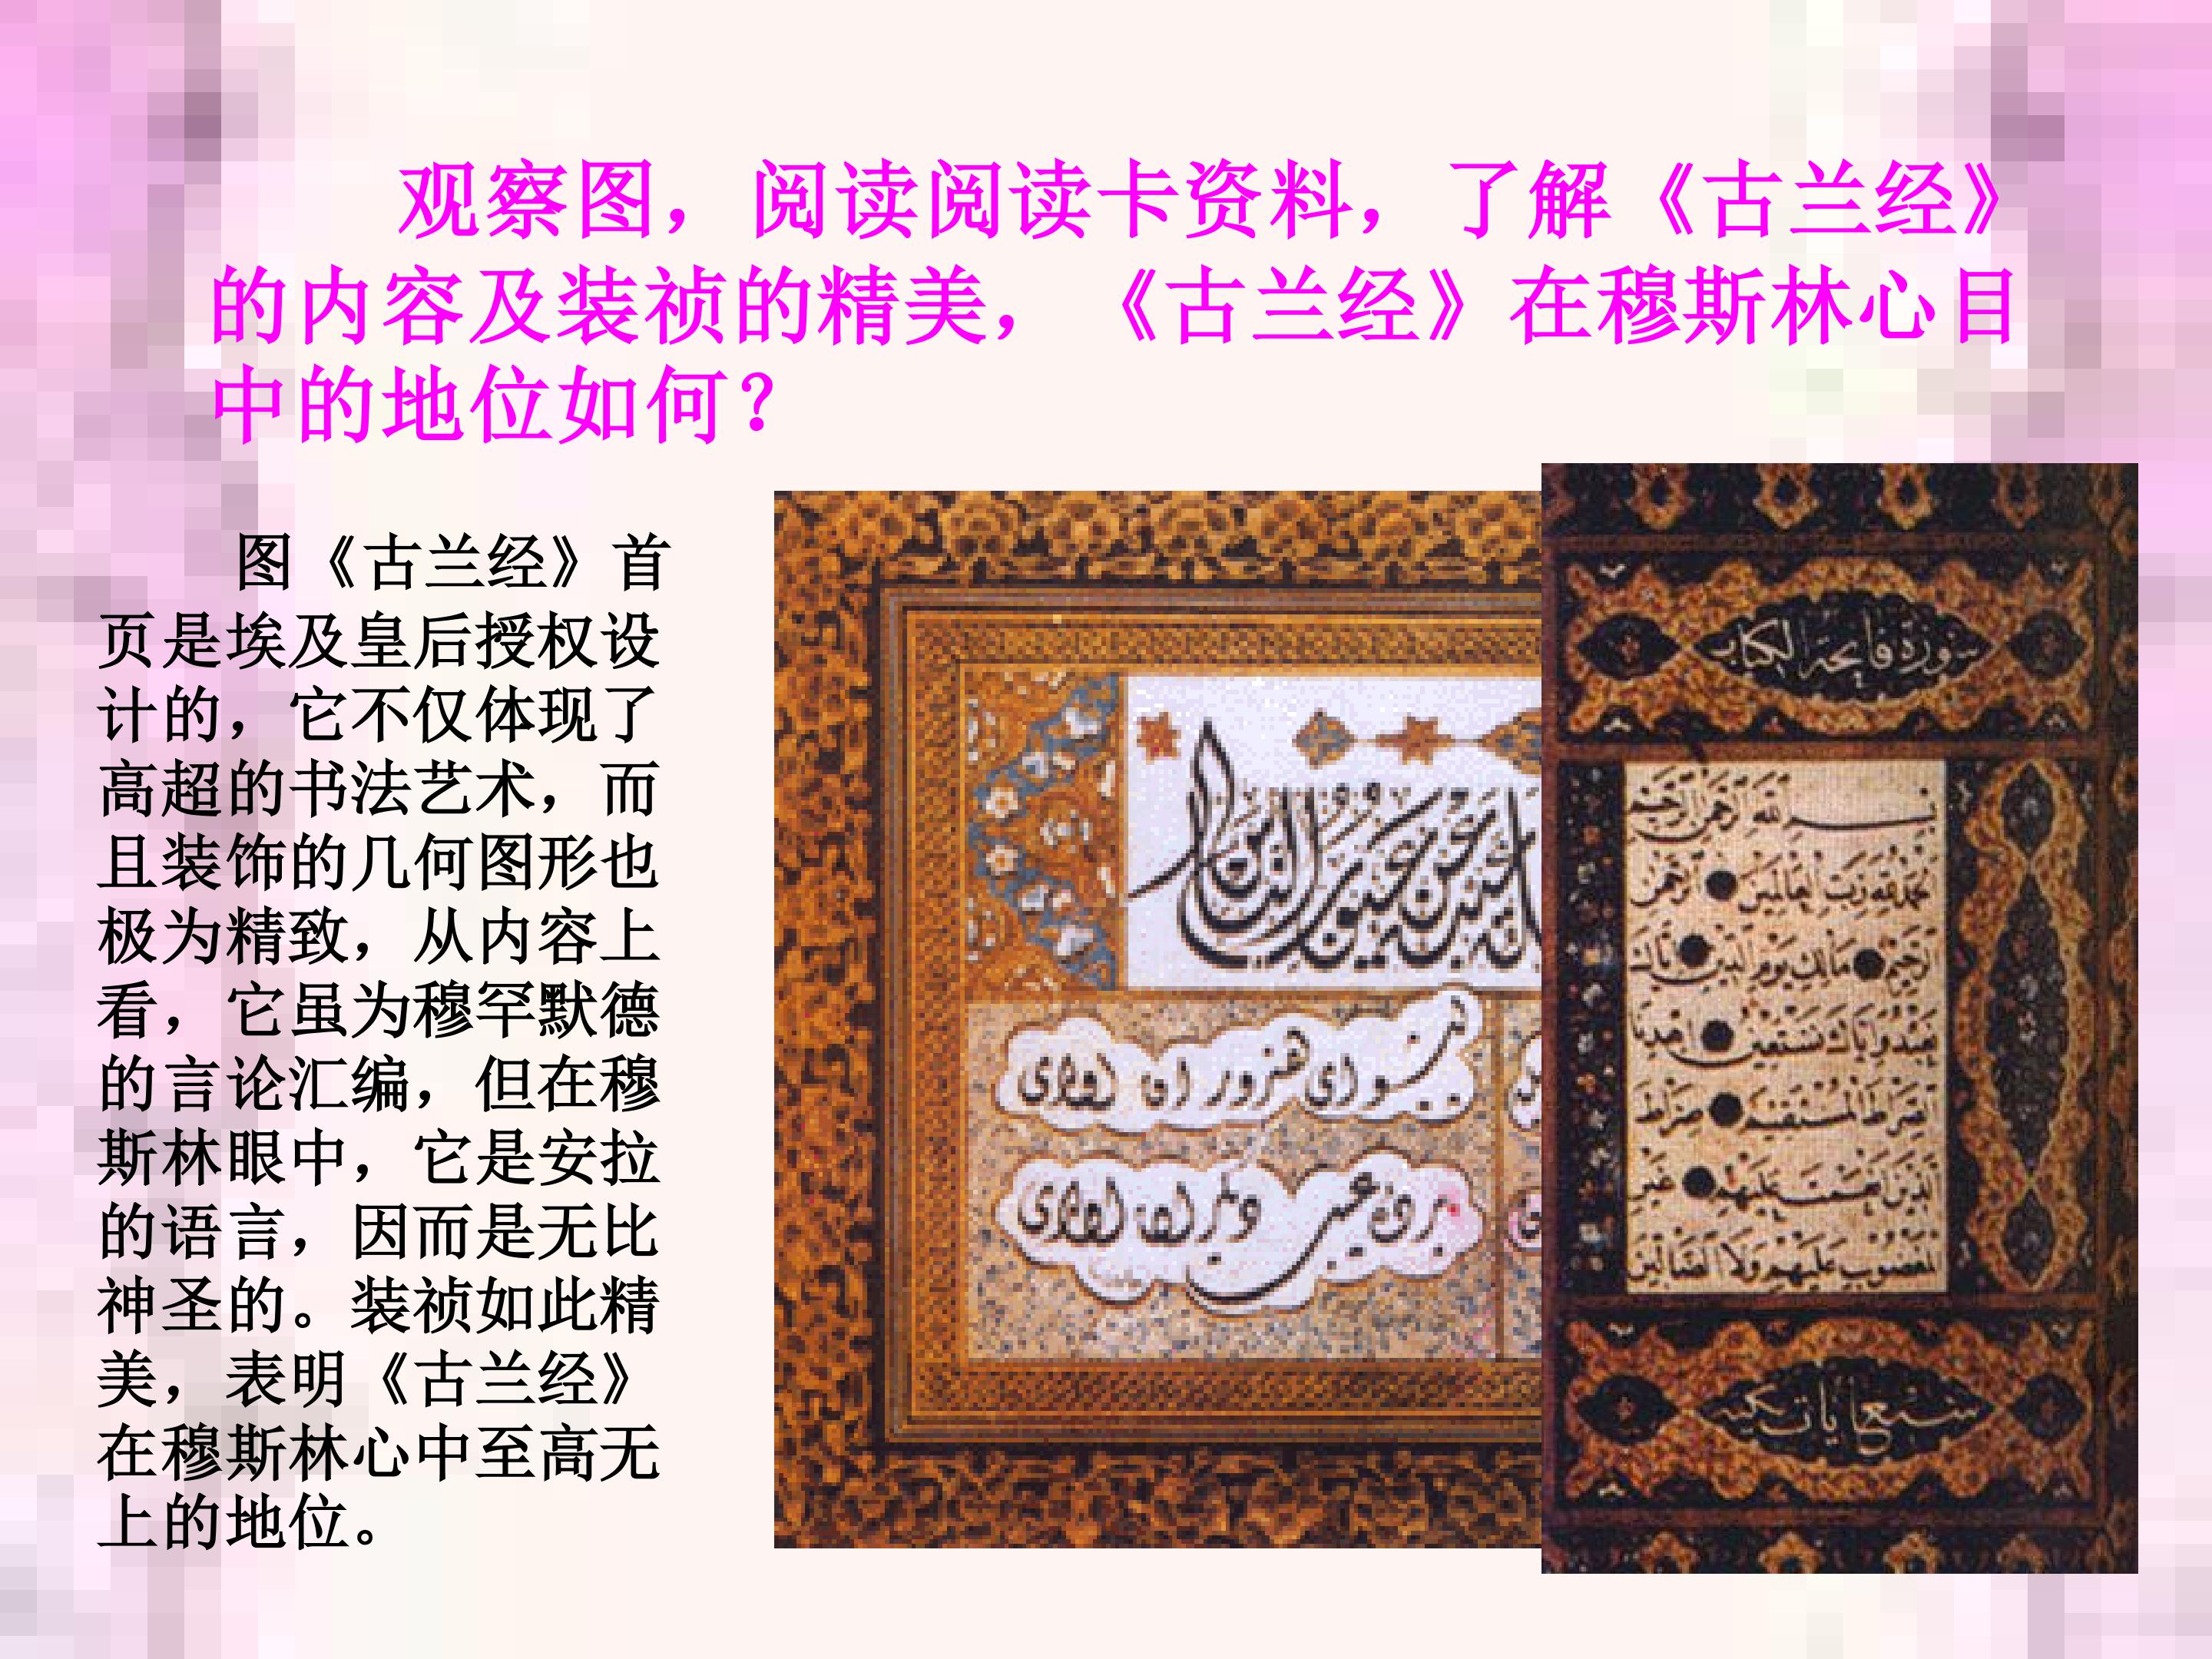 观察图，阅读阅读卡资料，了解《古兰经》
的内容及装祯的精美，《古兰经》在穆斯林心目
中的地位如何？
图《古兰经》首
页是埃及皇后授权设
计的，它不仅体现了
高超的书法艺术，而
且装饰的几何图形也
极为精致，从内容上
看，它虽为穆罕默德
的言论汇编，但在穆
斯林眼中，它是安拉
的语言，因而是无比
神圣的。装祯如此精
美，表明《古兰经》
在穆斯林心中至高无
上的地位。
سورة فاتحة الكتاب
بسم الله الرحمن الرحيم
الحمد لله رب العالمين الرحمن
الرحيم مالك يوم الدين إياك
نعبد وإياك نستعين اهدنا
الصراط المستقيم صراط
الذين أنعمت عليهم غير
المغضوب عليهم ولا الضالين